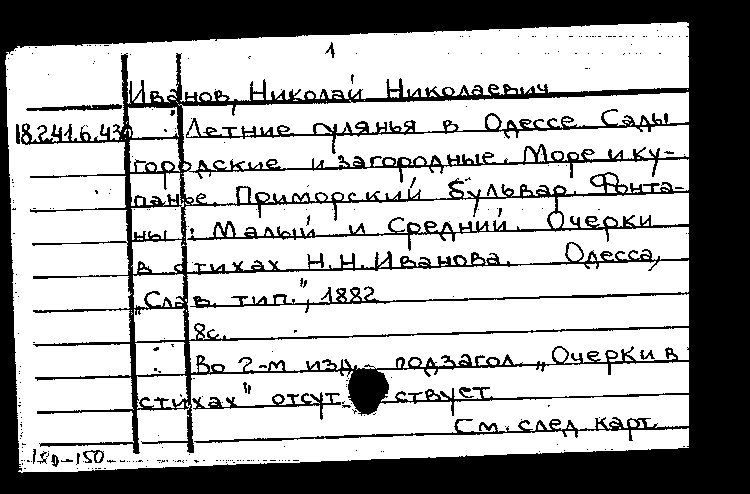 1
Иванов, Николай Николаевич
18.241.6.430 Летние гулянья в Одессе. Сады
городские и загородные. Море и ку-
панье. Приморский бульвар. Фонта-
ны: Малый и Средний. Очерки
в стихах Н.Н.Иванова. Одесса,
„Слав. тип.", 1882
8с.
Во 2-м изд. подзагол. „Очерки в
стихах" отсутствует
См. след. карт.